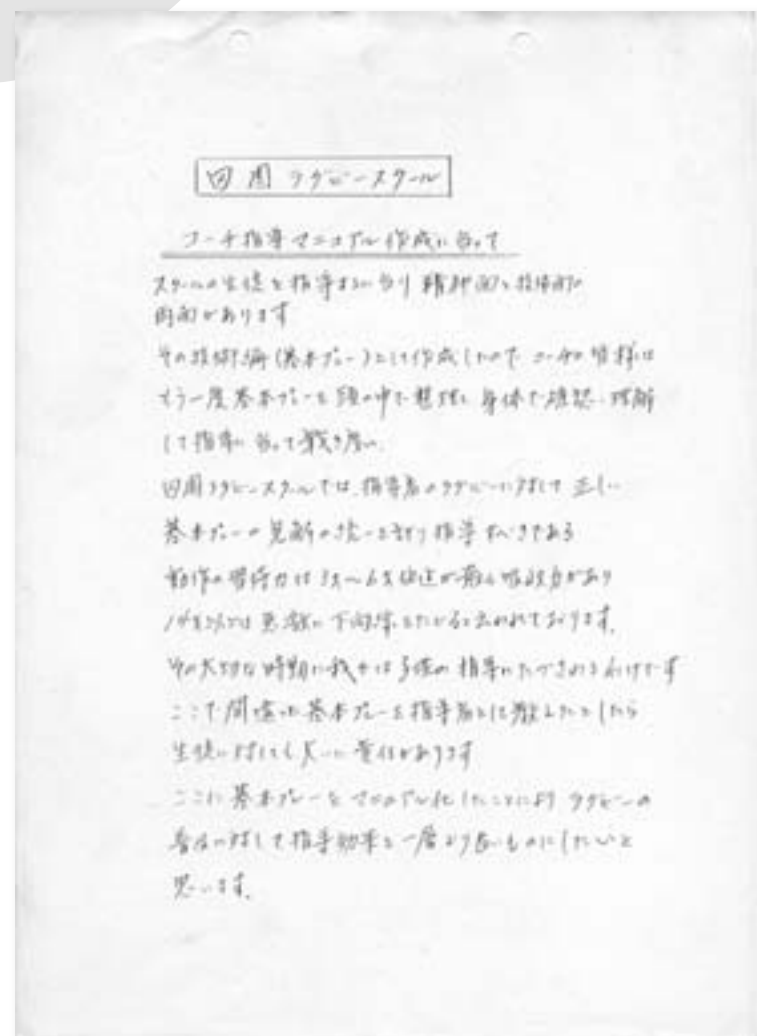 田園ラグビースクール
コーチ指導マニュアル作成に当って
スクールの生徒を指導するに当り 精神面と技術面の
両面があります
その技術編(基本プレー)として作成したので コーチの皆様は
もう一度基本プレーを頭の中で整理し 身体で確認、理解
して指導に当って戴き度い。
田園ラグビースクールでは、指導者のラグビーに対して 正しい
基本プレーの見解の統一を 指導すべきである
動作の習得力は 才~ 才位迄が最も吸収力があり
才 では 急激に下向 をたどると云われております。
その大切な時期に我々は子供の指導にたづさわるわけです
ここで間違った基本プレーを指導者として教えたとしたら
生徒に対しても大いに責任があります
ここに基本プレーをマニュアル化したことにより ラグビーの
普及に対して指導効率を一層より良いものにしたいと
思います。